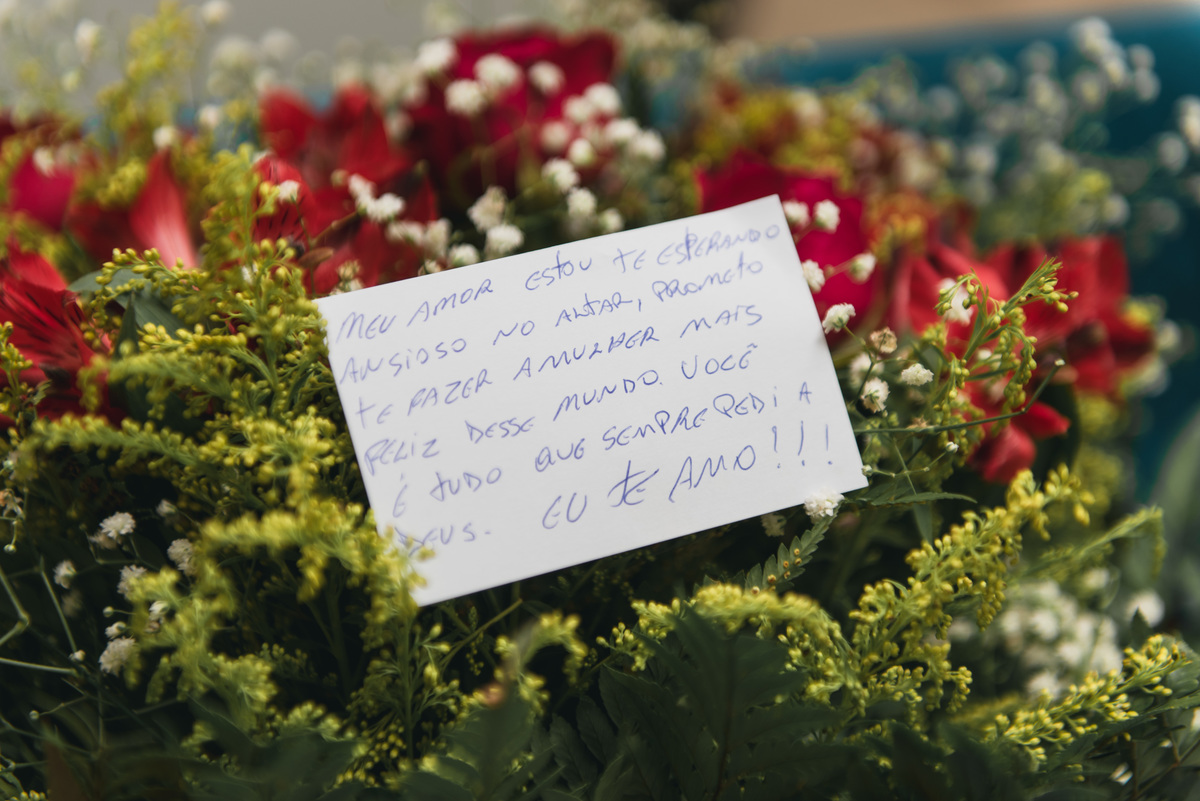 MEU AMOR ESTOU TE ESPERANDO
ANSIOSO NO ALTAR, PROMETO
TE FAZER A MULHER MAIS
FELIZ DESSE MUNDO. VOCÊ
É TUDO QUE SEMPRE PEDI A
DEUS. EU TE AMO!!!